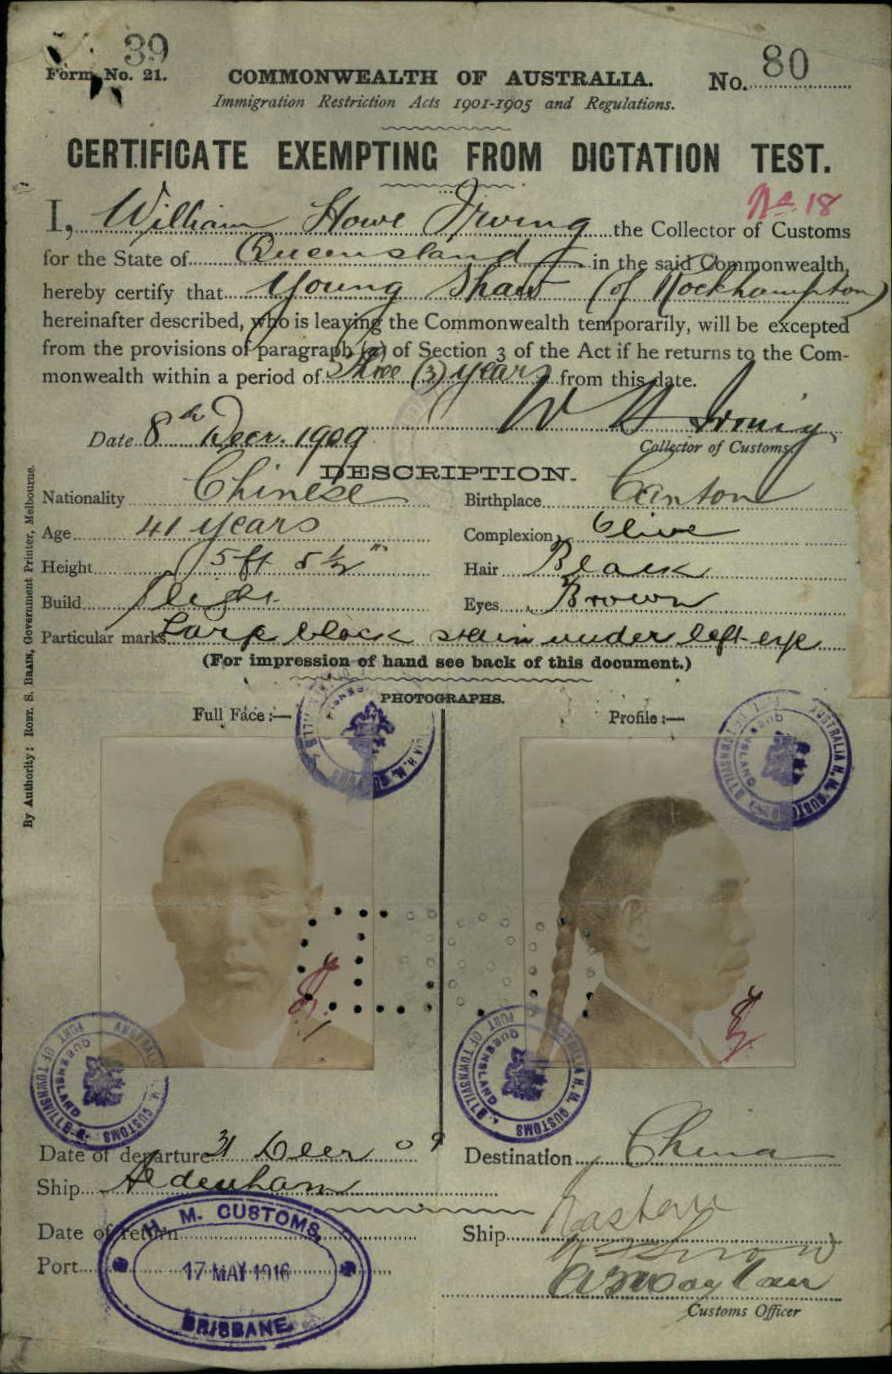 39
Form No. 21.
COMMONWEALTH OF AUSTRALIA.
No. 80
Immigration Restriction Acts 1901-1905 and Regulations.
CERTIFICATE EXEMPTING FROM DICTATION TEST.
No. 18
I, William Howe Irving the Collector of Customs
for the State of Queensland in the said Commonwealth,
hereby certify that Young Shaw (of Rockhampton)
hereinafter described, who is leaving the Commonwealth temporarily, will be excepted
from the provisions of paragraph (a) of Section 3 of the Act if he returns to the Com-
monwealth within a period of three (3) years from this date.
W H Irving
Date 8th Decr. 1909
Collector of Customs.
DESCRIPTION.
Nationality Chinese
Birthplace Canton
Age 41 years
Complexion Olive
Height 5 ft 5 ½"
Hair Black
Build
Eyes Brown
Particular marks Large black stain under left eye
(For impression of hand see back of this document.)
PHOTOGRAPHS.
Full Face:—
Profile:—
By Authority: Robt. S. Brain, Government Printer, Melbourne.
AUSTRALIA H.M. CUSTOMS
QUEENSLAND
PORT OF TOWNSVILLE
QUEENSLAND
PORT OF TOWNSVILLE
H.M. CUSTOMS
QUEENSLAND
PORT OF TOWNSVILLE
AUSTRALIA H.M. CUSTOMS
Date of departure 31 Decr 09
Destination China
Ship Aldenham
Date of return
Ship Eastern
Port
H. M. CUSTOMS
17 MAY 1916
BRISBANE
Customs Officer